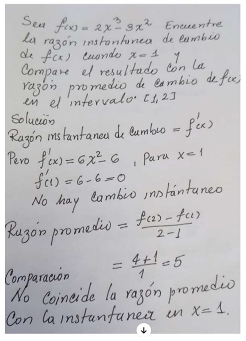 Sea f(x) = 2x³ - 3x² Encuentre
la razón instantanea de cambio
de f(x) cuando x = 1 y
Compare el resultado con la
razón promedio de cambio de f(x)
en el intervalo [1,2]
Solución
Razón instantanea de cambio = f'(x)
Pero f'(x) = 6x² - 6, Para x = 1
f'(1) = 6 - 6 = 0
No hay cambio instántaneo
Razón promedio = f(2) - f(1) / 2 - 1
= 4+1 / 1 = 5
Comparación
No Coincide la razón promedio
Con la instantanea en x = 1.